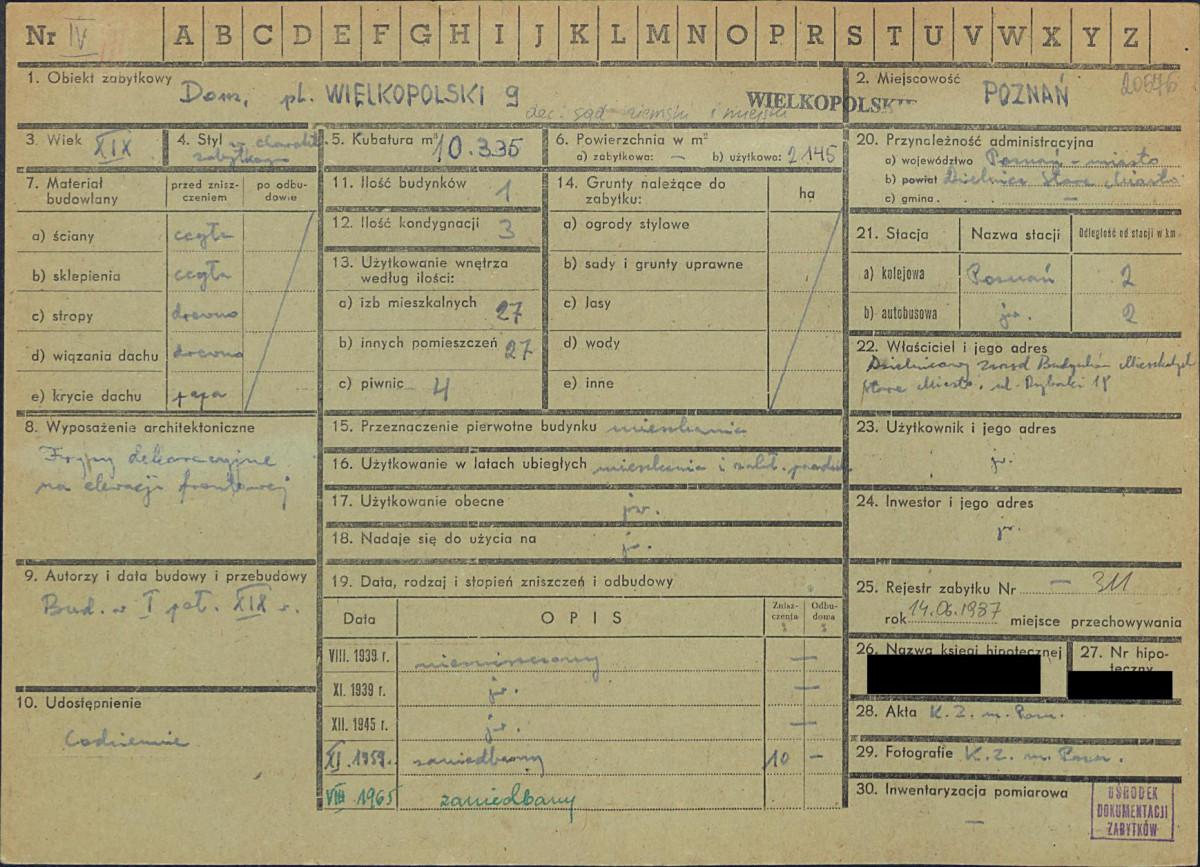 Nr IV A B C D E F G H I J K L M N O P R S T U V W X Y Z
1. Obiekt zabytkowy Dom, pl. WIELKOPOLSKI 9
WIELKOPOLSKIE
2. Miejscowość POZNAŃ
3. Wiek XIX
4. Styl
zabytkowego
5. Kubatura m³ 10.335
6. Powierzchnia w m²
a) zabytkowa: — b) użytkowa: 2145
7. Materiał budowlany
przed zniszczeniem
po odbudowie
a) ściany cegła
b) sklepienia cegła
c) stropy drewno
d) wiązania dachu drewno
e) krycie dachu papa
8. Wyposażenie architektoniczne
Fryzy dekoracyjne
na elewacji frontowej
9. Autorzy i data budowy i przebudowy
Bud. w I poł. XIX w.
10. Udostępnienie
Codziennie
11. Ilość budynków 1
12. Ilość kondygnacji 3
13. Użytkowanie wnętrza
według ilości:
a) izb mieszkalnych 27
b) innych pomieszczeń 27
c) piwnic 4
14. Grunty należące do
zabytku:
ha
a) ogrody stylowe
b) sady i grunty uprawne
c) lasy
d) wody
e) inne
15. Przeznaczenie pierwotne budynku mieszkania
16. Użytkowanie w latach ubiegłych mieszkania i
17. Użytkowanie obecne jw.
18. Nadaje się do użycia na jw.
19. Data, rodzaj i stopień zniszczeń i odbudowy
Data OPIS Zniszczenia % Odbudowa %
VIII. 1939 r. niezniszczony —
XI. 1939 r. jw. —
XII. 1945 r. jw. —
XI. 1959. zaniedbany 10 —
VIII 1965 zaniedbany
20. Przynależność administracyjna
a) województwo Poznań - miasto
b) powiat Dzielnica Stare Miasto
c) gmina. —
21. Stacja Nazwa stacji Odległość od stacji w km
a) kolejowa Poznań 2
b) autobusowa jw. 2
22. Właściciel i jego adres
Dzielnicowy Zarząd Budynków Mieszkalnych
Stare Miasto, ul. Rybaki 18
23. Użytkownik i jego adres
jw.
24. Inwestor i jego adres
jw.
25. Rejestr zabytku Nr — 311
rok 14.06.1987 miejsce przechowywania
26. Nazwa księgi hipotecznej
27. Nr hipoteczny
28. Akta K. Z. m. Pozn.
29. Fotografie K. Z. m. Pozn.
30. Inwentaryzacja pomiarowa
—
OŚRODEK
DOKUMENTACJI
ZABYTKÓW